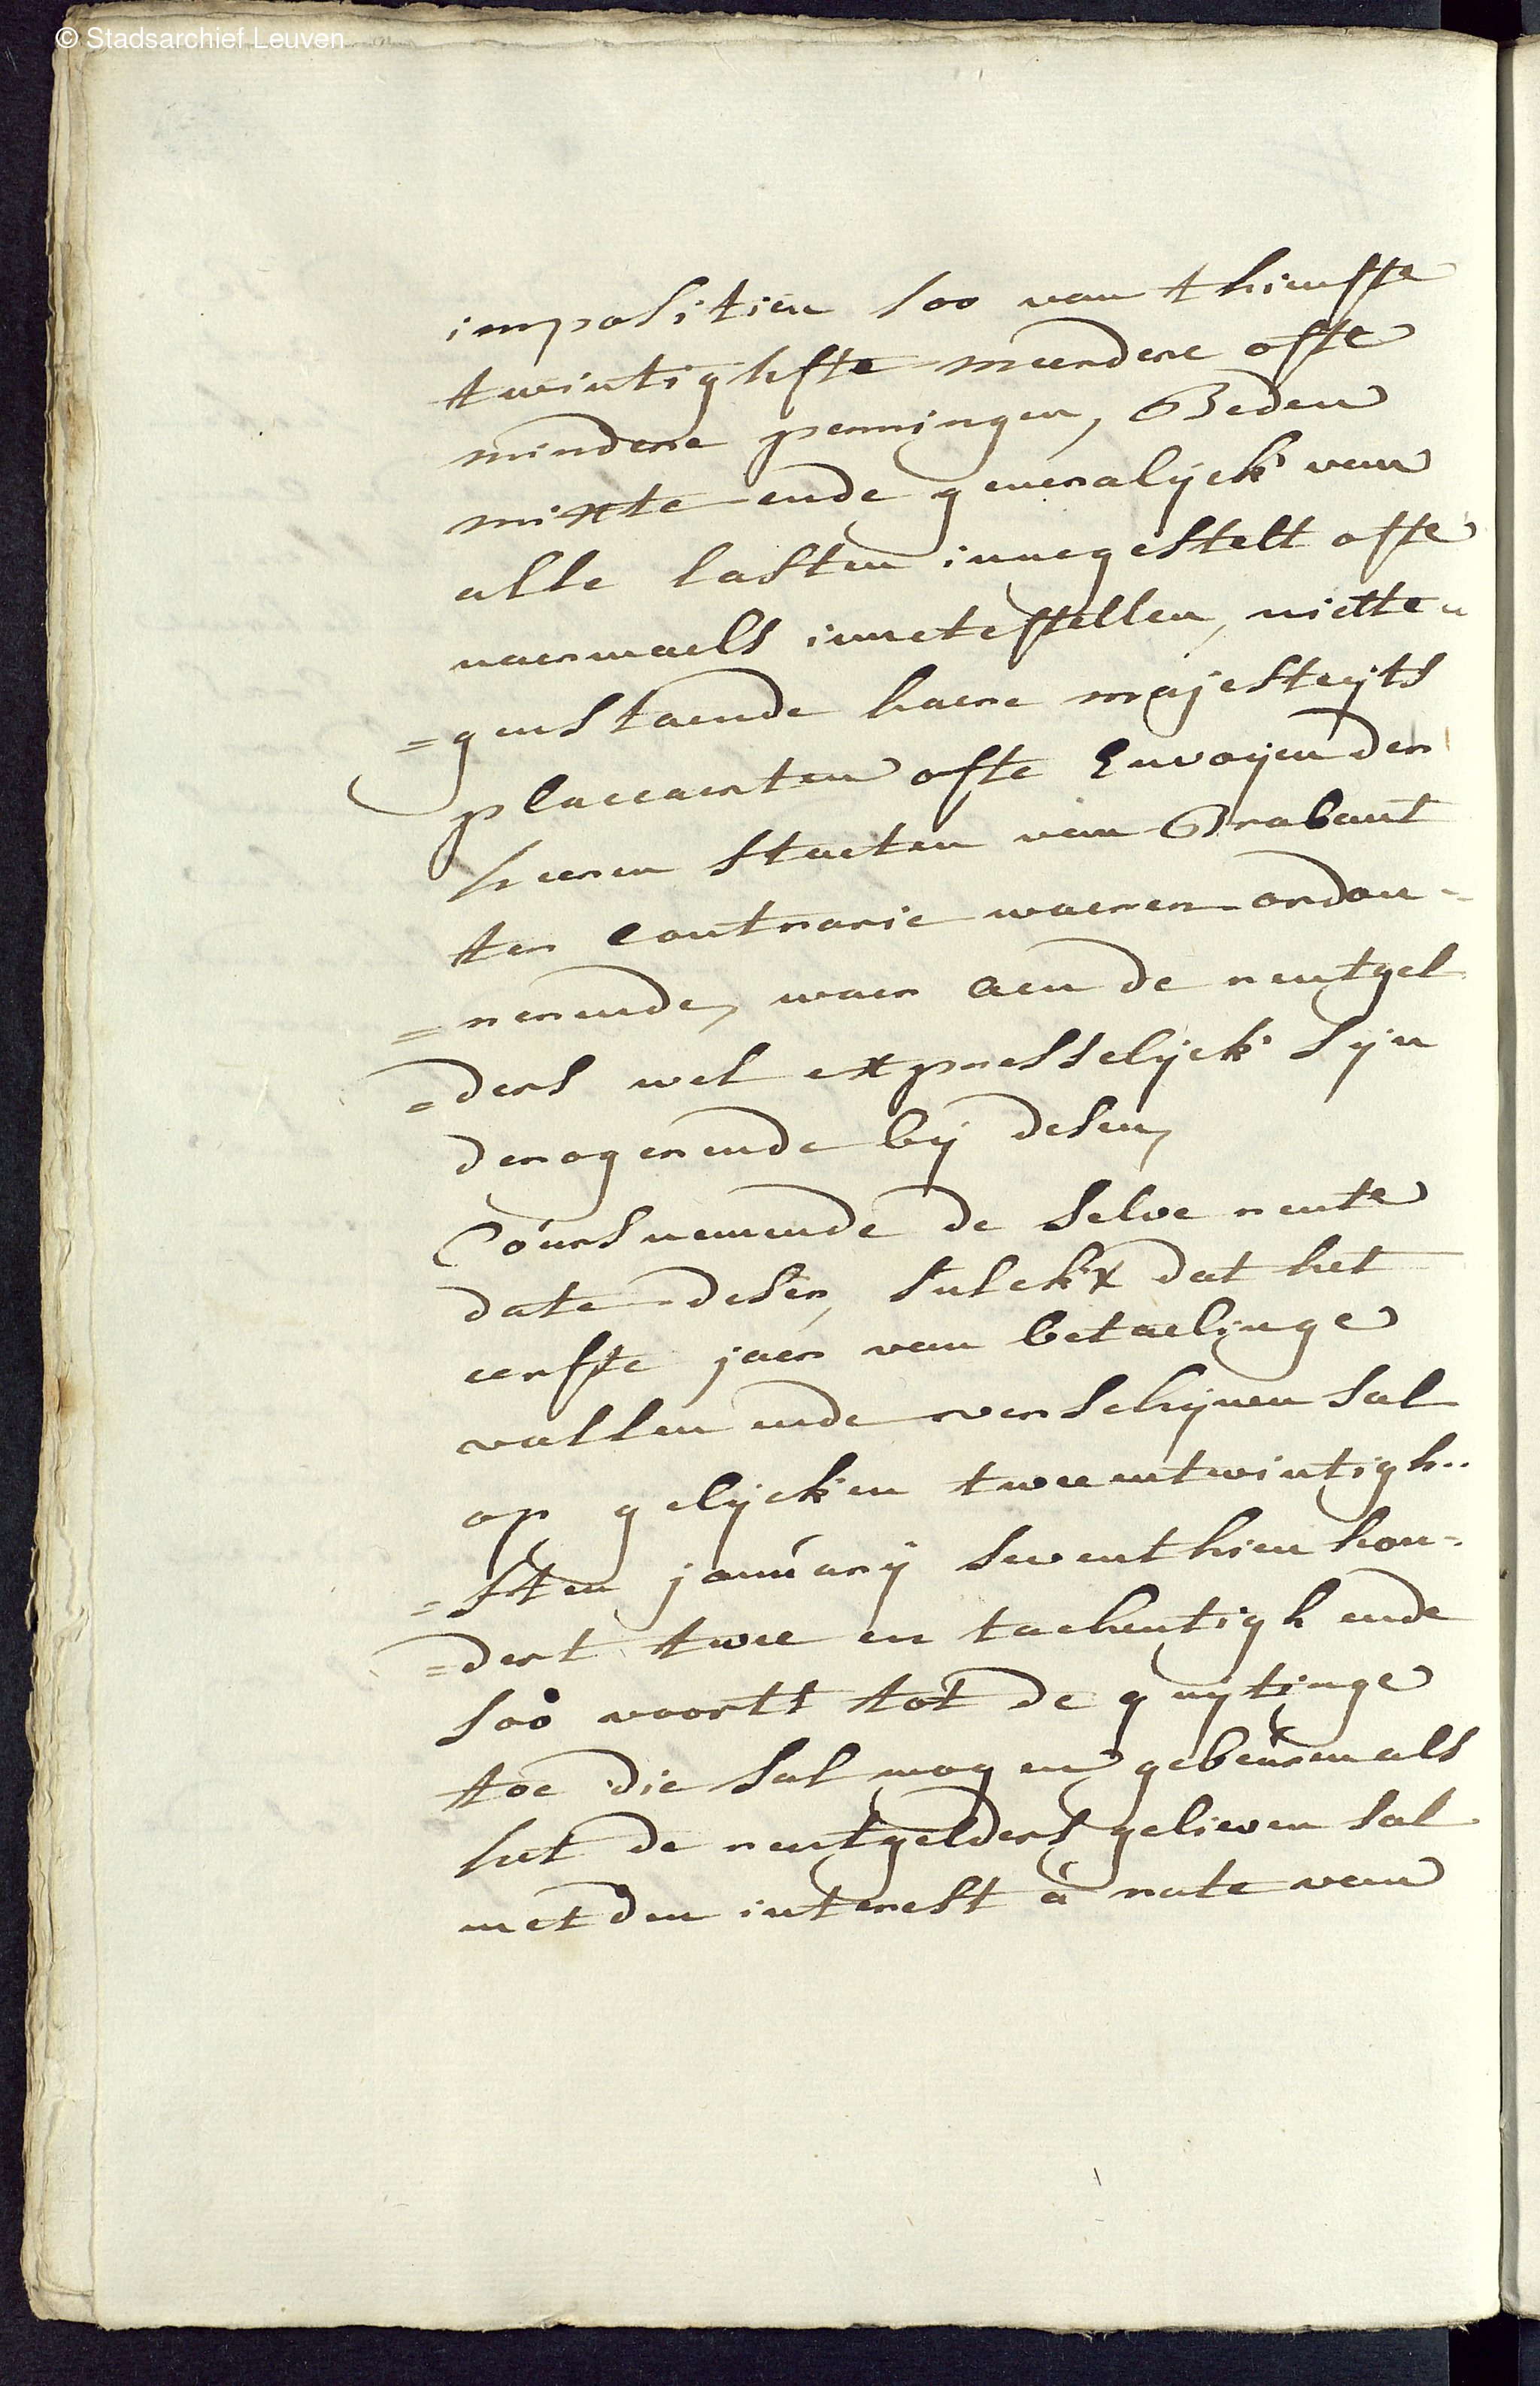 © Stadsarchief Leuven
impositien soo van thienste
twintighste meerdere ofte
mindere penningen, Beden
mixte ende generalijck van
alle lasten innegestelt ofte
naermaels innetestellen, niette„
=genstaende haere majesteijts
placcaerten ofte Envoijen der
heeren staeten van Brabant
ter contrarie waeren ordon„
=nerende, waer aen de rentgel
=ders wel expresselijck sijn
derogerende bij desen,
Coursnemende de selve rente
date deser, sulckx dat het
eerste jaer van betaelinge
vallen ende verschijnen sal
op gelijcken tweentwintigh„
=sten januarij seventhien hon„
=dert twee en tachentigh ende
soo voorts tot de quytinge
toe die sal mogen gebeuren als
het de rentgelders gelieven sal
met den interest à rate van